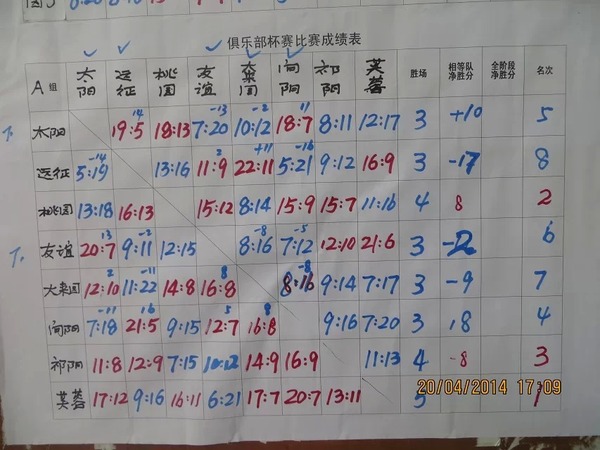 俱乐部杯赛比赛成绩表
A组 太阳 远征 桃园 友谊 大来园 向阳 祁阳 芙蓉 胜场 相等队净胜分 全阶段净胜分 名次
太阳 19:5 14 18:13 7:20 -13 10:12 -2 18:7 11 8:11 12:17 3 +10 5
远征 5:19 -14 13:16 11:9 2 22:11 +11 5:21 -16 9:12 16:9 3 -17 8
桃园 13:18 16:13 15:12 8:14 15:9 15:7 11:16 4 8 2
友谊 20:7 13 9:11 -2 12:15 8:16 -8 7:12 -5 12:10 21:6 3 -2 6
大来园 12:10 2 11:22 -11 14:8 16:8 8 8:16 -8 9:14 7:17 3 -9 7
向阳 7:18 -11 21:5 16 9:15 12:7 5 16:8 8 9:16 7:20 3 18 4
祁阳 11:8 12:9 7:15 10:12 14:9 16:9 11:13 4 -8 3
芙蓉 17:12 9:16 16:11 6:21 17:7 20:7 13:11 5 1
20/04/2014 17:09